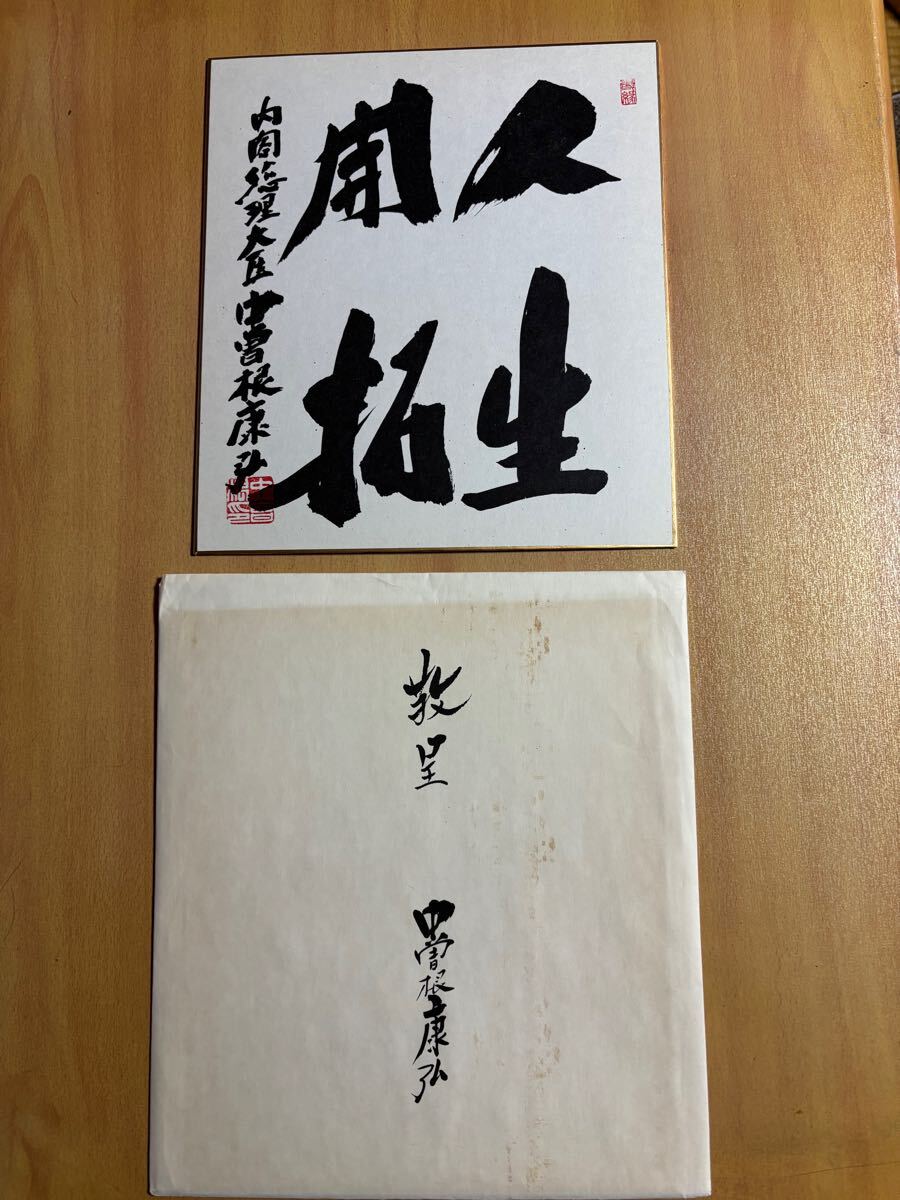 人生
開拓
内閣総理大臣 中曽根康弘
敬呈
中曽根康弘